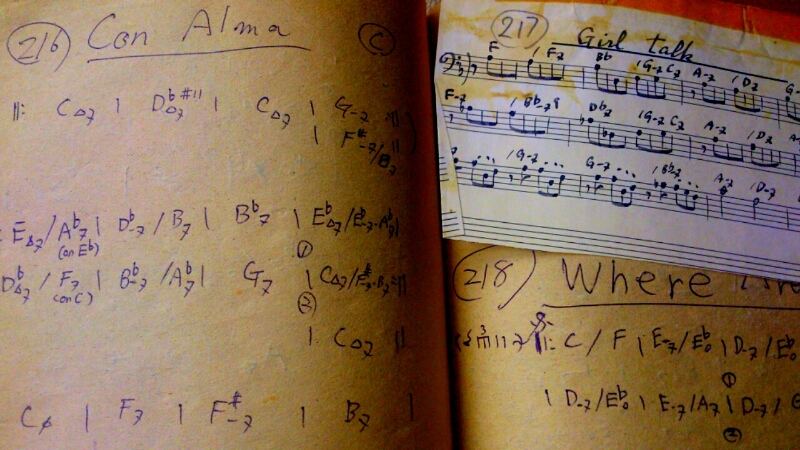 216) Con Alma (C)
||: CΔ7 | D♭Δ7#11 | CΔ7 | G-7 :||
| F#-7/B7 ||
EΔ7/A♭7 | D♭-7/B7 | B♭7 | E♭Δ7/E♭-7·A♭7|
(on E♭) ①
D♭Δ7/F7 | B♭-7/A♭7 | G7 | CΔ7/F#-7·B7 :||
(on C) ②
| CΔ7 ||
Cø | F7 | F#-7 | B7 |
217) Girl talk
F | F7 B♭ | G-7 C7 A-7 | D7
F-7 | B♭-7 D♭7 | G-7 C7 A-7 | D7
| G-7 G-7 | B♭7 A-7 | D-7
218) Where
||: C / F | E-7/E♭o | D-7/E♭o
①
| D-7/E♭o | E-7/A7 | D-7/
②